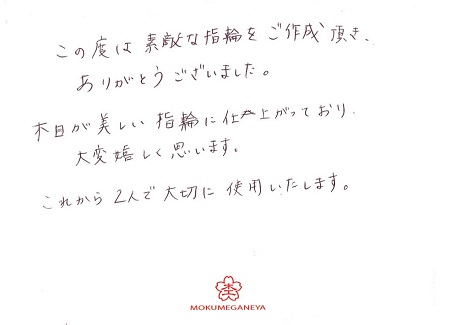 この度は素敵な指輪をご作成頂き、
ありがとうございました。
木目が美しい指輪に仕上がっており、
大変嬉しく思います。
これから2人で大切に使用いたします。
杢
MOKUMEGANEYA